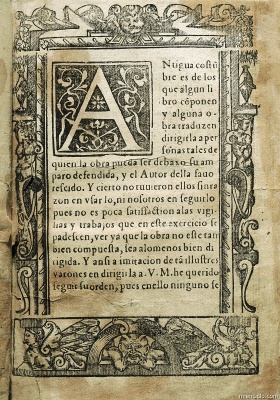 A Ntigua costũ
bre es de los
que algun li
bro cõponen
y alguna o-
bra traduzen
dirigirla a per
sonas tales de
quien la obra pueda ser debaxo su am
paro defendida, y el Autor della fauo
rescido. Y cierto no tuuieron ellos sin ra
zon en vsar lo, ni nosotros en seguirlo
pues no es poca satisfaction a las vigi-
lias y trabajos que en este exercicio se
padescen, ver ya que la obra no este tan
bien compuesta, sea alomenos bien di
rigida. Y ansi a imitacion de tã illustres
varones en dirigirla a. V. M. he querido
seguir su orden, pues en ello ninguno se